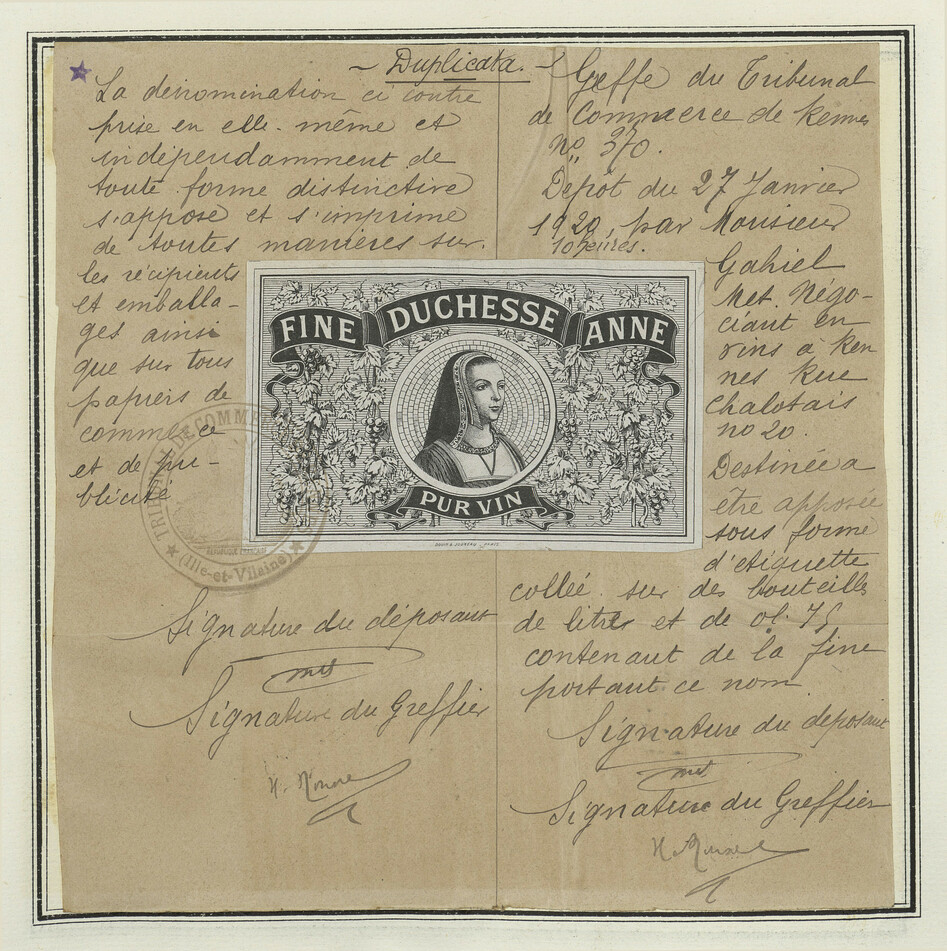 Duplicata.
La dénomination ci contre
prise en elle-même et
indépendamment de
toute forme distinctive
s'appose et s'imprime
de toutes manières sur
les récipients
et emballa-
ges ainsi
que sur tous
papiers de
commerce
et de pu-
blicité
TRIBUNAL DE COMMERCE
RÉPUBLIQUE FRANÇAISE
(Ille-et-Vilaine)
Signature du déposant
Signature du Greffier
FINE DUCHESSE ANNE
PUR VIN
Greffe du Tribunal
de Commerce de Rennes
no 370.
Depôt du 27 Janvier
1920, par Monsieur
10 heures.
Gahiel
Met. Négo-
ciant en
vins à Ren
nes Rue
Chalotais
no 20.
Destinée a
être apposée
sous forme
d'etiquette
collée sur des bouteilles
de litres et de 0l. 75
contenant de la fine
portant ce nom
Signature du déposant
Signature du Greffier